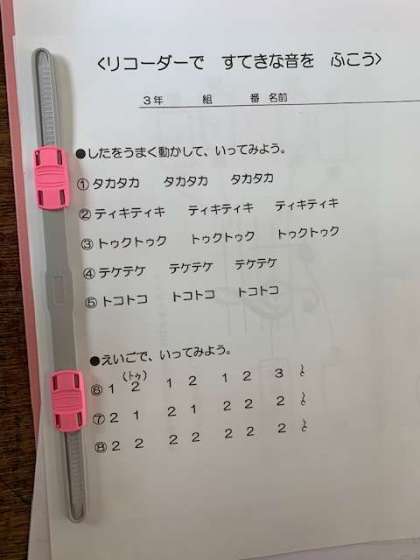 〈リコーダーで すてきな音を ふこう〉
3年 組 番 名前
●したをうまく動かして、いってみよう。
①タカタカ タカタカ タカタカ
②ティキティキ ティキティキ ティキティキ
③トゥクトゥク トゥクトゥク トゥクトゥク
④テケテケ テケテケ テケテケ
⑤トコトコ トコトコ トコトコ
●えいごで、いってみよう。
(トゥ)
⑥1 2 1 2 1 2 3 𝄽
⑦2 1 2 1 2 2 2 𝄽
⑧2 2 2 2 2 2 2 𝄽